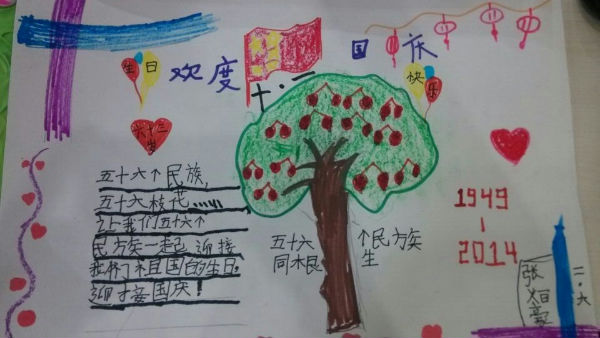 欢度 国庆
十·一
生日
快乐
六十三
岁
五十六个民族,
五十六枝花……
让我们五十六个
民族一起迎接
我们祖国的生日,
迎接国庆!
五十六 个民族
同木根 生
1949
-
2014
二·六